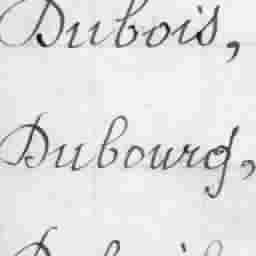 Dubois,
Dubourg,